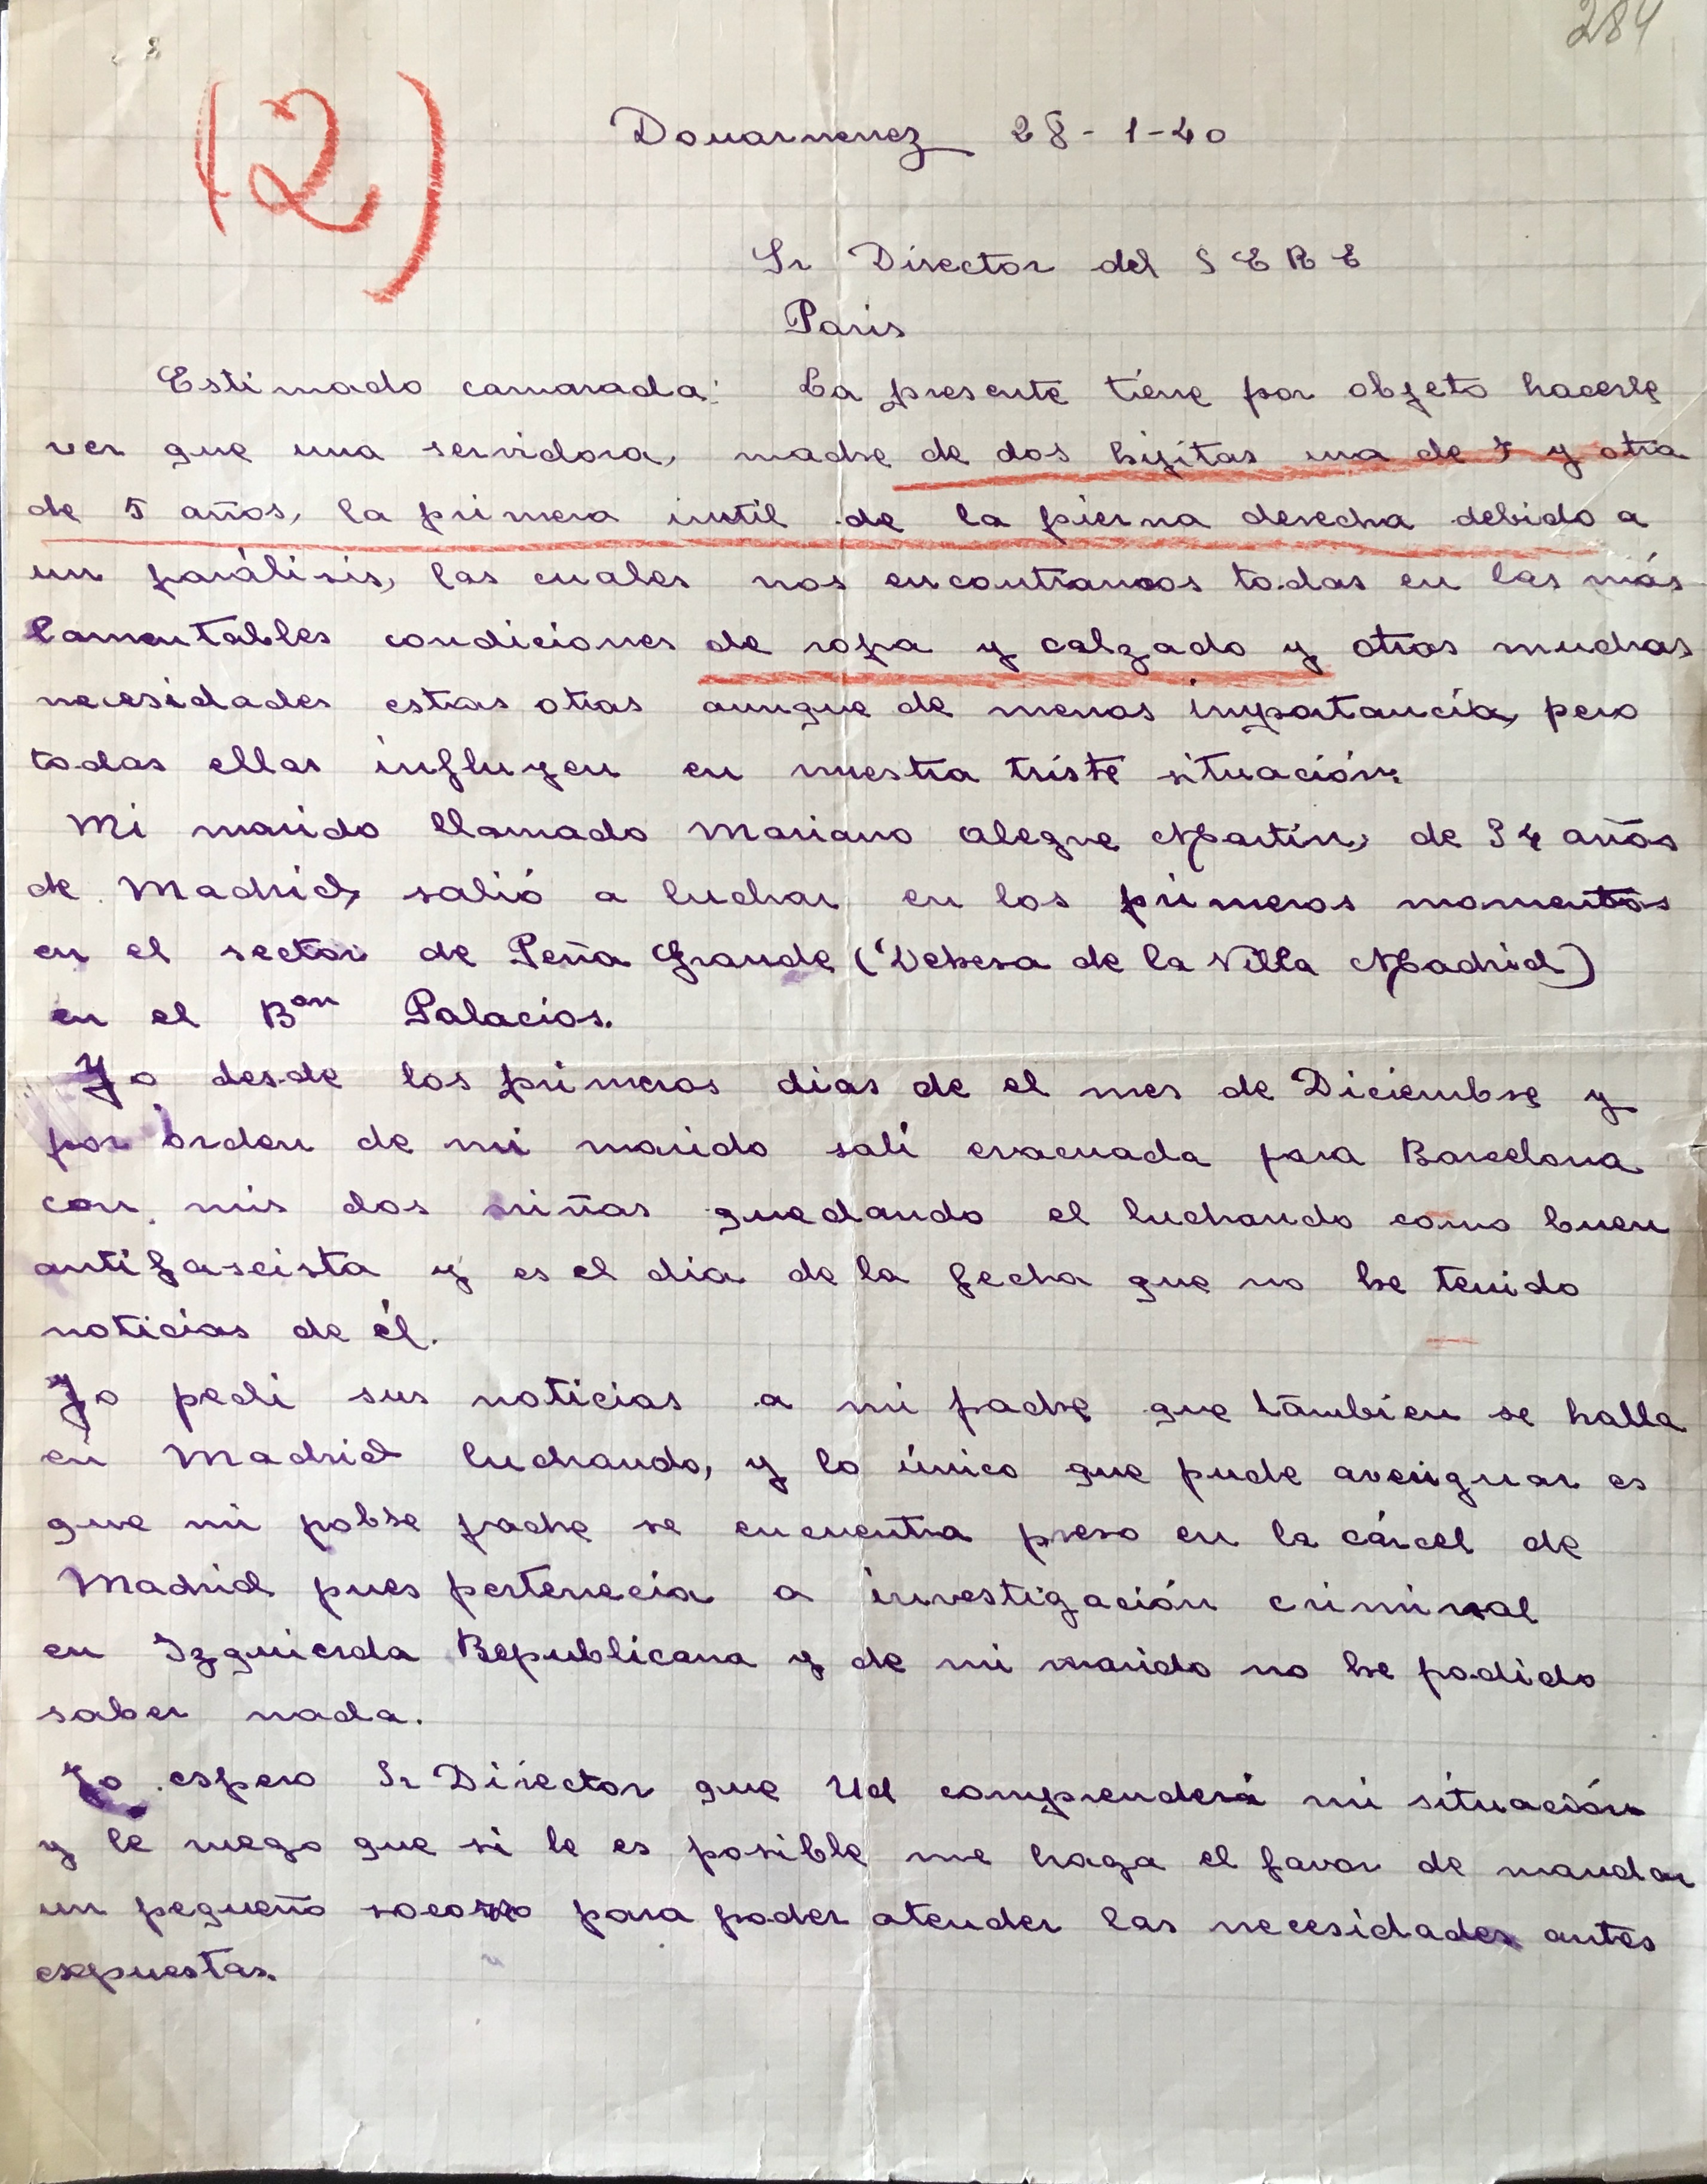 284
(2)
Douarnenez 28-1-40
Sr Director del S E R E
Paris
Estimado camarada: La presente tiene por objeto hacerle
ver que una servidora, madre de dos hijitas una de 7 y otra
de 5 años, la primera inutil de la pierna derecha debido a
un parálisis, las cuales nos encontramos todas en las más
lamentables condiciones de ropa y calzado y otras muchas
necesidades estras otras aunque de menos importancia, pero
todas ellas influyen en nuestra triste situación.
Mi marido llamado Mariano Alegre Martín, de 34 años
de Madrid, salió a luchar en los primeros momentos
en el sector de Peña Grande (Dehesa de la Villa Madrid)
en el Bon Palacios.
Yo desde los primeros dias de el mes de Diciembre y
por orden de mi marido salí evacuada para Barcelona
con mis dos niñas quedando el luchando como buen
antifascista y es el dia de la fecha que no he tenido
noticias de él.
Yo pedi sus noticias a mi padre que tambien se halla
en Madrid luchando, y lo único que pude averiguar es
que mi pobre padre se encuentra preso en la cárcel de
Madrid pues pertenecia a investigación criminal
en Izquierda Republicana y de mi marido no he podido
saber nada.
Yo espero Sr Director que Ud comprenderá mi situación
y le ruego que si le es posible me haga el favor de mandar
un pequeño socorro para poder atender las necesidades antes
expuestas.